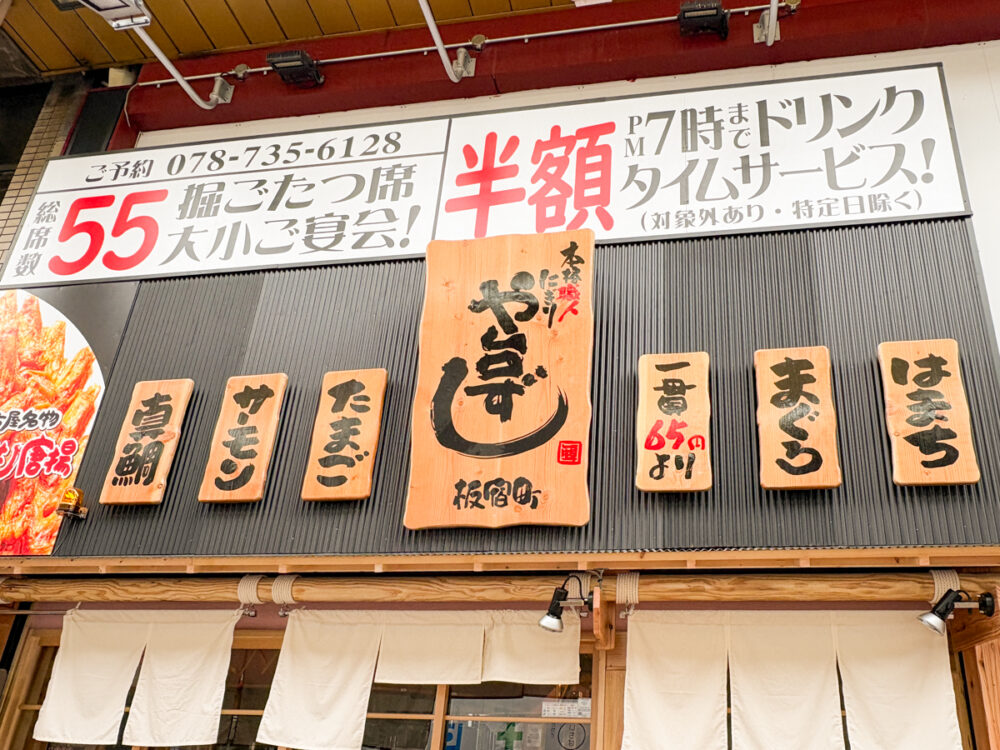 ご予約 078-735-6128
総席数 55 掘ごたつ席
大小ご宴会!
半額 PM7時までドリンク
タイムサービス!
(対象外あり・特定日除く)
本格職人
にぎり
や台ずし
板宿町
真鯛
サーモン
たまご
一貫
65円
より
まぐろ
はまち
屋名物
唐揚